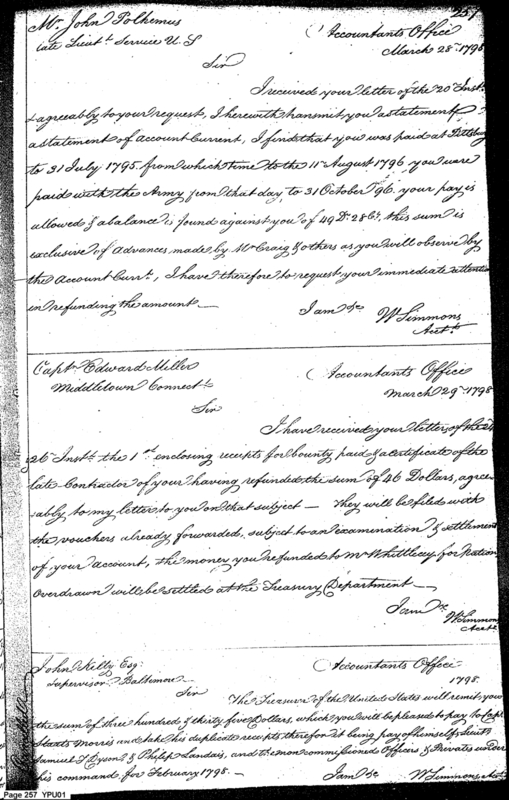 257
Mr. John Polhemus
late Lieut. Service U.S
Accountants Office
March 28th. 1798
Sir
I received your letter of the 20th Inst.
& agreeably to your request, I herewith transmit you a statement
a statement of Account Current, I find that you was paid at Pittsburg
to 31 July 1795 from which time to the 11th August 1796 you were
paid with the Army from that day, to 31 October 96 your pay is
allowed & a balance is found against you of 49 Ds. 28 Cts, this sum is
exclusive of advances made by Mr Craig & others as you will observe by
the Account Currt, I have therefore to request your immediate attention
in refunding the amount —
I am &c
W Simmons
Acctt
Capt. Edward Miller
Middletown Connectt.
Accountants Office
March 29th. 1798
Sir
I have received your letters of the 24
26th Instt. the 1st enclosing receipts for bounty paid & a certificate of the
late Contractor of your having refunded the sum of 46 Dollars, agree-
ably to my letter to you on that subject — They will be filed with
the vouchers already forwarded, subject to an examination & settlement
of your account, the money you refunded to Mr Whittlecey for Rations
Overdrawn will be settled at the Treasury Department —
I am &c
W Simmons
Acctt
John Kelty Esq.
Supervisor Baltimore
Accountants Office
1798.
Sir
The Treasurer of the United States will remit you
the sum of three hundred & thirty five Dollars, which you will be pleased to pay to Capt
Staats Morris and take his duplicate receipts therefor it being pay of himself, Lieuts
Samuel T Dyson & Philip Landais, and the non commissioned Officers & Privates under
his command for February 1798. —
I am &c
W Simmons, Acctt
Page 257 YPU01